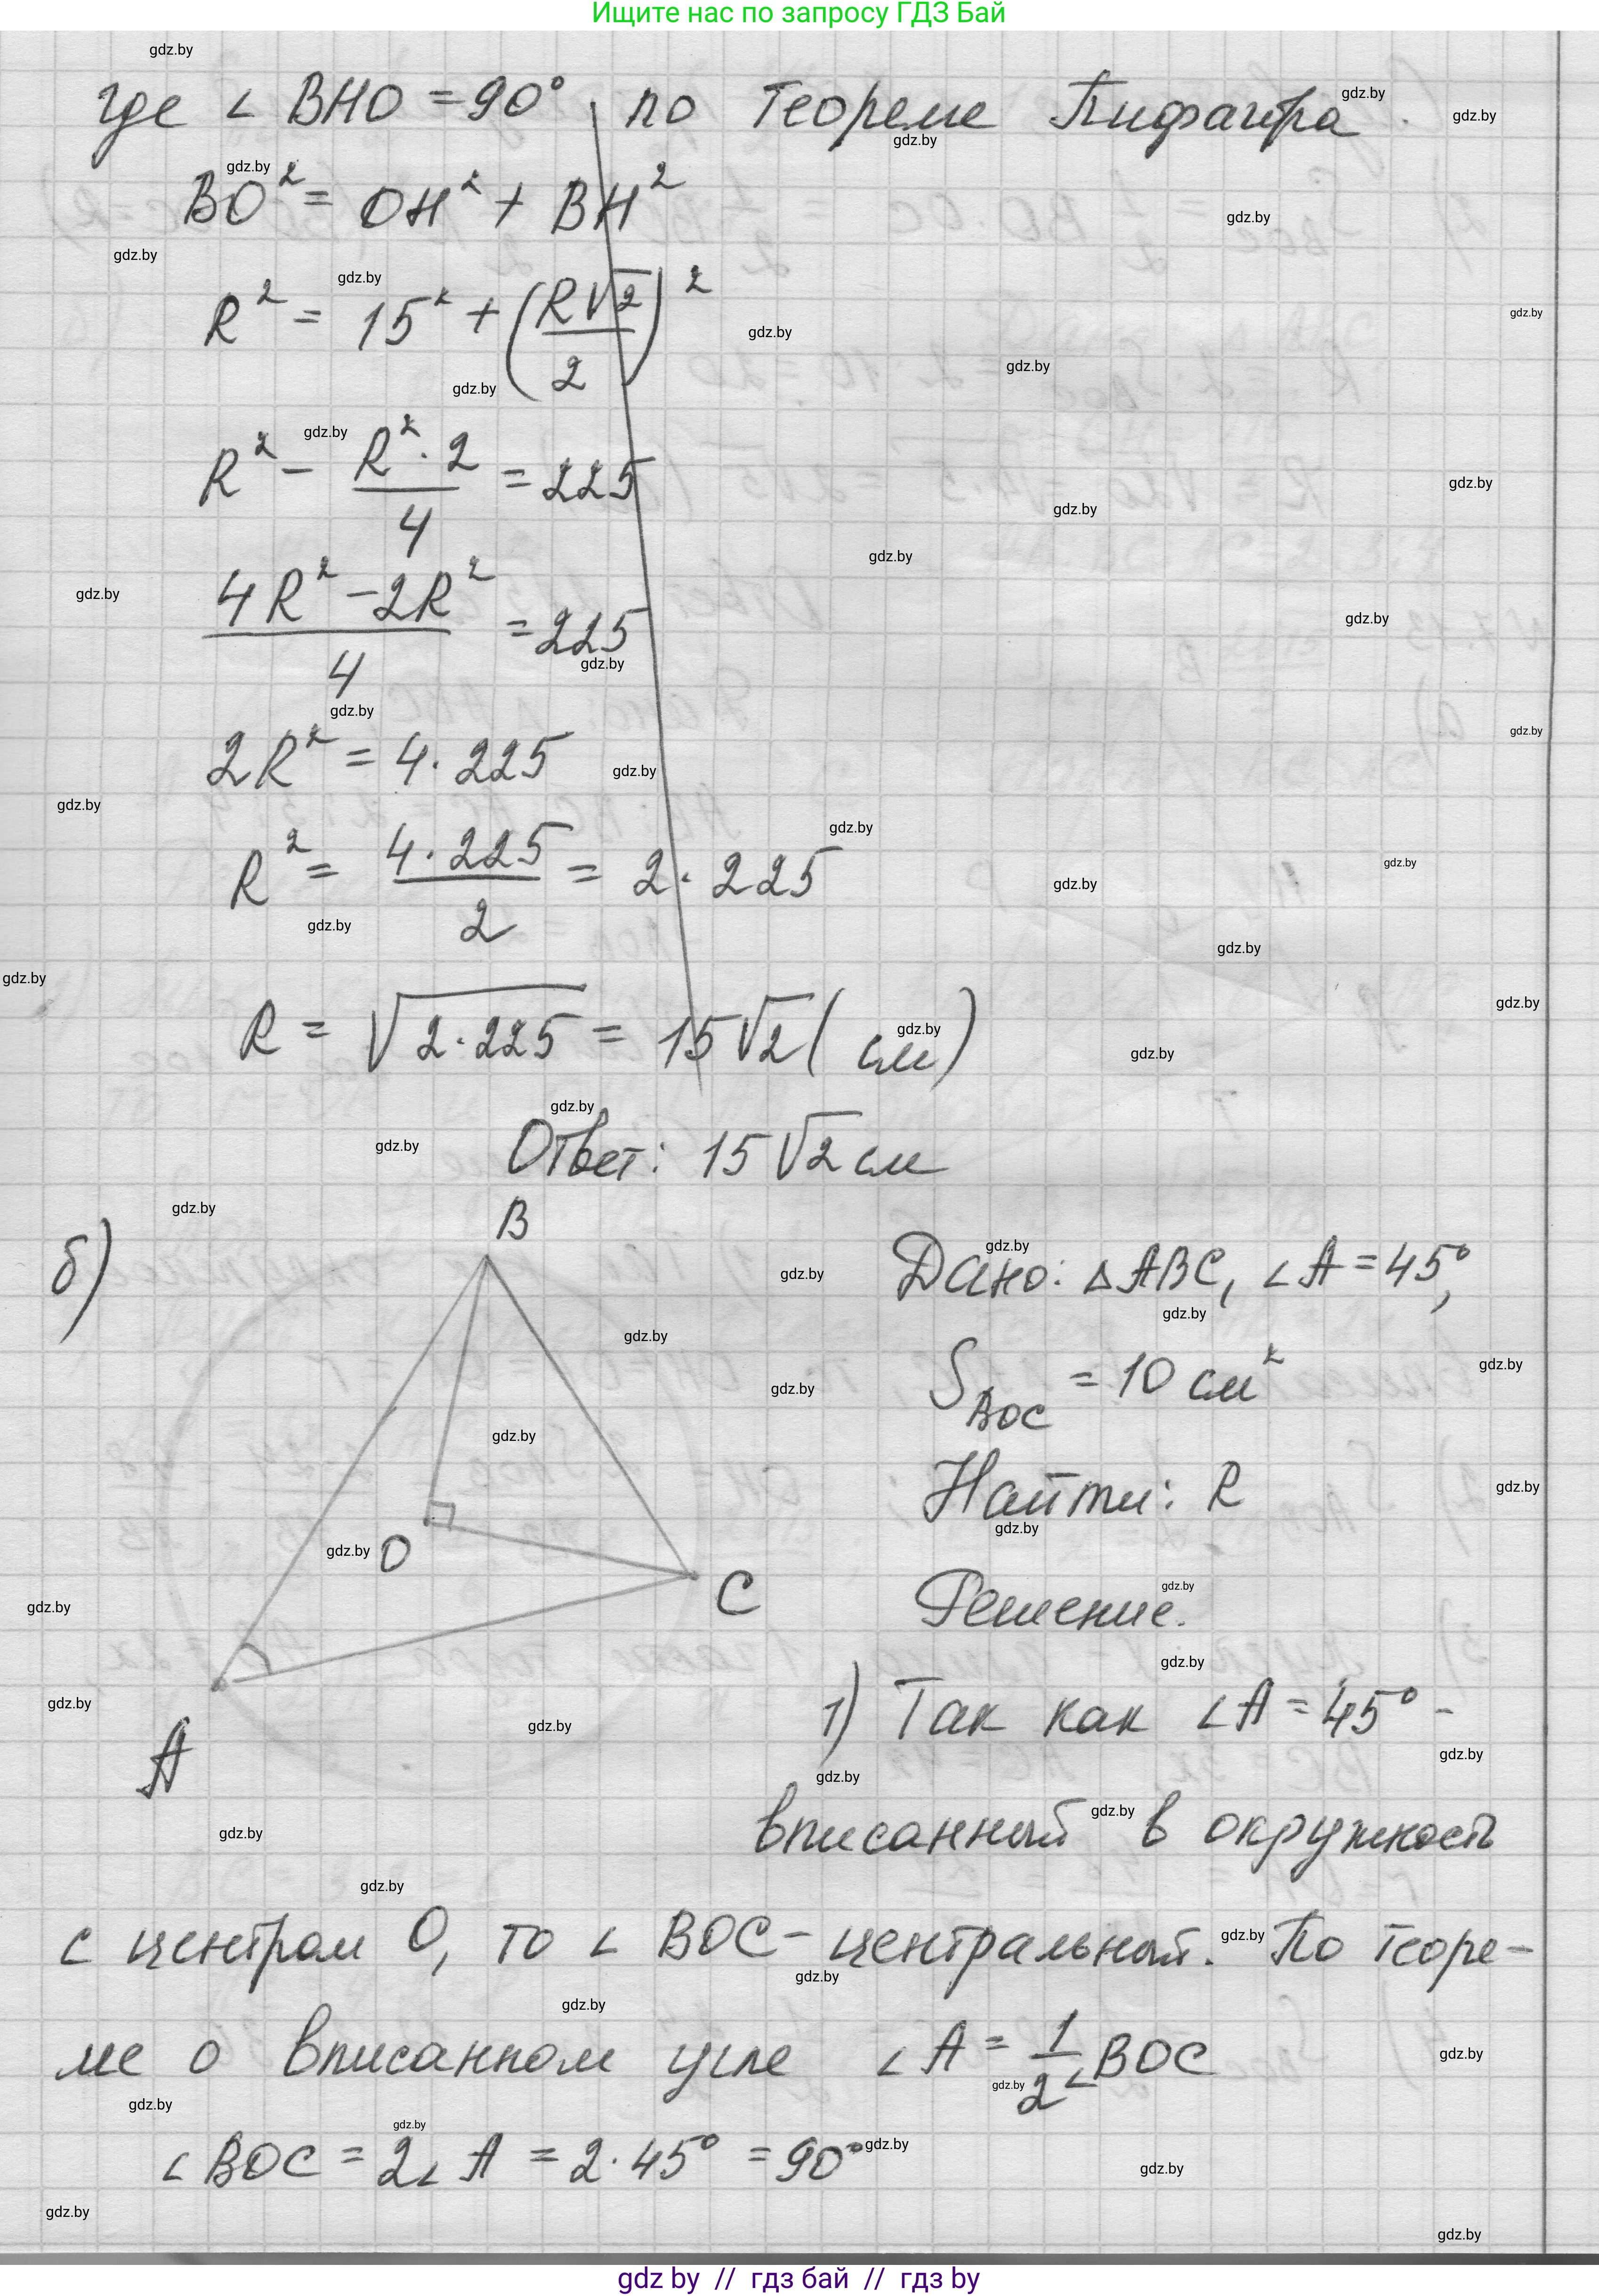 Ищите нас по запросу ГДЗ Бай
где ∠ BHO = 90°, по теореме Пифагора.
BO² = OH² + BH²
R² = 15² + (R√2/2)²
R² - R²·2/4 = 225
(4R² - 2R²)/4 = 225
2R² = 4·225
R² = 4·225/2 = 2·225
R = √2·225 = 15√2 (см)
Ответ: 15√2 см
б)
B
O
C
A
Дано: △ABC, ∠A = 45°,
S BOC = 10 см²
Найти: R
Решение.
1) Так как ∠A = 45° -
вписанный в окружность
с центром O, то ∠ BOC - центральный. По теоре-
ме о вписанном угле ∠A = 1/2 ∠BOC
∠BOC = 2∠A = 2·45° = 90°
gdz by // гдз бай // гдз by